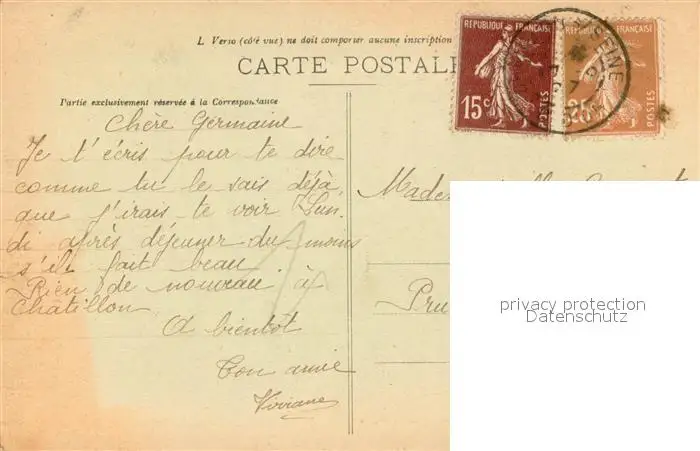 L Verso (côté vue) ne doit comporter aucune inscription
CARTE POSTALE
Partie exclusivement réservée à la Correspondance
REPUBLIQUE FRANÇAISE
15c
POSTES
REPUBLIQUE FRANÇAISE
25c
POSTES
SEINE
Chère Germaine
Je t'écris pour te dire
comme tu le sais déjà,
que j'irais te voir Lun-
di après déjeuner du moins
s'il fait beau
Rien de nouveau à
Chatillon
A bientôt
Ton amie
Viviane
privacy protection
Datenschutz